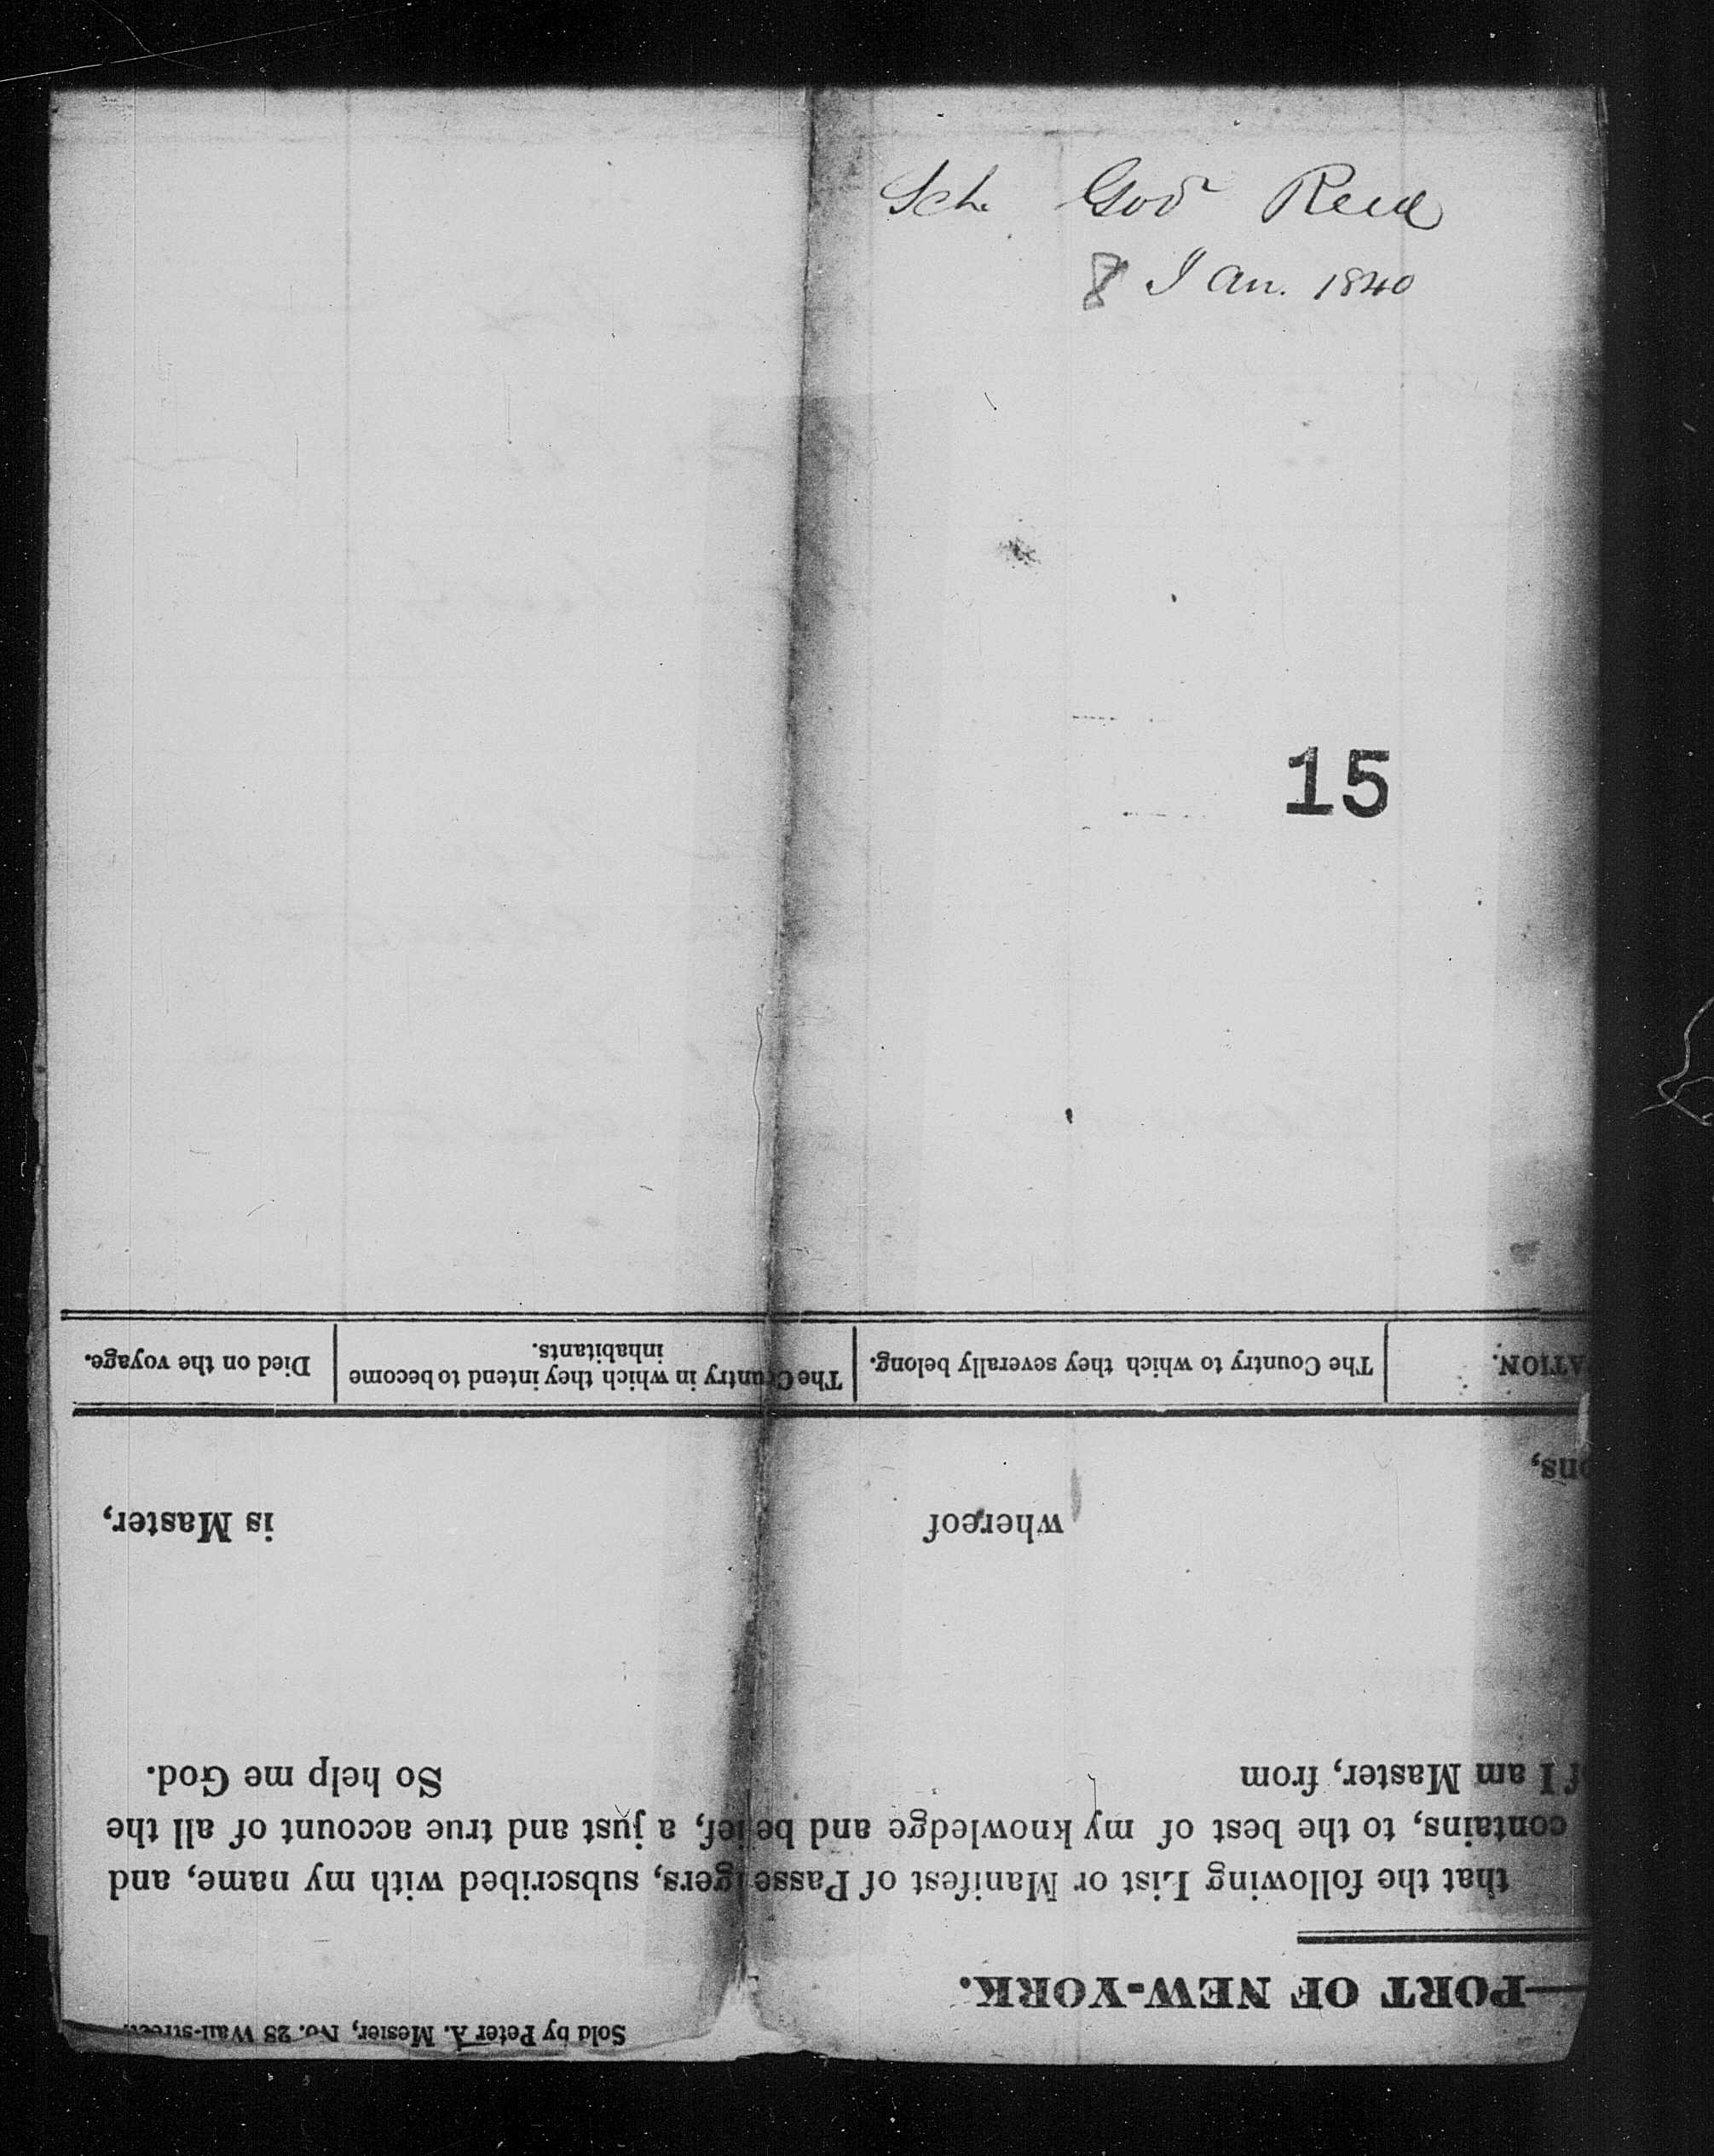 Sch. Gov^r Reed
8 Jan. 1840
15
Sold by Peter A. Mesier, No. 28 Wall-street.
—PORT OF NEW-YORK.
that the following List or Manifest of Passengers, subscribed with my name, and
contains, to the best of my knowledge and belief, a just and true account of all the
f I am Master, from So help me God.
whereof is Master,
ons,
ATION. The Country to which they severally belong. The Country in which they intend to become inhabitants. Died on the voyage.